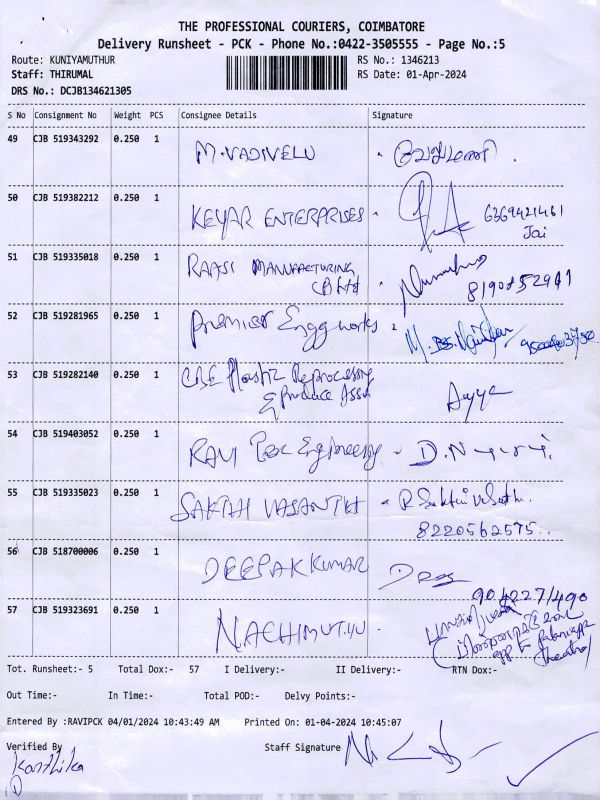 THE PROFESSIONAL COURIERS, COIMBATORE
Delivery Runsheet - PCK - Phone No.:0422-3505555 - Page No.:5
Route: KUNIYAMUTHUR RS No.: 1346213
Staff: THIRUMAL RS Date: 01-Apr-2024
DRS No.: DCJB134621305
S No Consignment No Weight PCS Consignee Details Signature
49 CJB 519343292 0.250 1 M.VADIVELU
50 CJB 519382212 0.250 1 KEYAR ENTERPRISES 6369421461
Jai
51 CJB 519335018 0.250 1 RAASI MANUFACTURING
52 CJB 519281965 0.250 1 Premier Engg works
53 CJB 519282140 0.250 1 CBE Plastic Reprocessing
& Produce
54 CJB 519403052 0.250 1 RAVI Engineering D.N
55 CJB 519335023 0.250 1 SAKTHI VASANTHI
8220562575..
56 CJB 518700006 0.250 1 DEEPAK KUMAR
9042271490
57 CJB 519323691 0.250 1 NACHIMUTHU
Tot. Runsheet:- 5 Total Dox:- 57 I Delivery:- II Delivery:- RTN Dox:-
Out Time:- In Time:- Total POD:- Delvy Points:-
Entered By :RAVIPCK 04/01/2024 10:43:49 AM Printed On: 01-04-2024 10:45:07
Verified By Staff Signature
Karthika